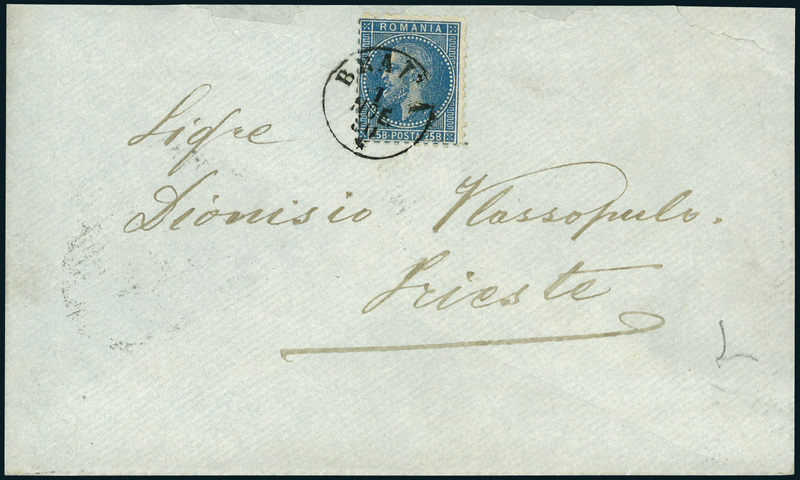 ROMANIA
25B. POSTA 25B
1
NOE
Sigre
Dionisio Vlassopulo.
Trieste